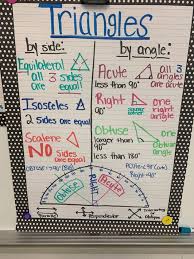 Triangles
by side:
Equilateral
all 3 sides
are equal
Isosceles
2 sides are equal
Scalene
NO sides
are equal
by angle:
Acute all 3
angles
less than 90°
Right one
right
90° angle
corner
Obtuse one
obtuse
longer than angle
90°
less than 180°
Right = 90°
Obtuse
RIGHT
Acute